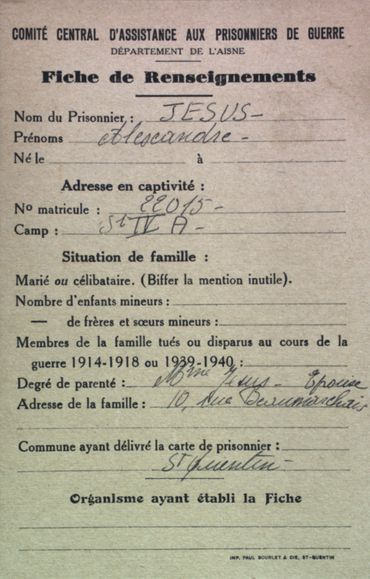 COMITÉ CENTRAL D'ASSISTANCE AUX PRISONNIERS DE GUERRE
DÉPARTEMENT DE L'AISNE
Fiche de Renseignements
Nom du Prisonnier : JESUS -
Prénoms Alexandre -
Né le à
Adresse en captivité :
No matricule : 22015 -
Camp : St IV A -
Situation de famille :
Marié ou célibataire. (Biffer la mention inutile).
Nombre d'enfants mineurs :
— de frères et sœurs mineurs :
Membres de la famille tués ou disparus au cours de la
guerre 1914-1918 ou 1939-1940 :
Degré de parenté : Mme Jesus - Epouse
Adresse de la famille : 10, rue Beaumarchais
Commune ayant délivré la carte de prisonnier :
St Quentin -
Organisme ayant établi la Fiche
IMP. PAUL BOURLET & CIE, ST-QUENTIN